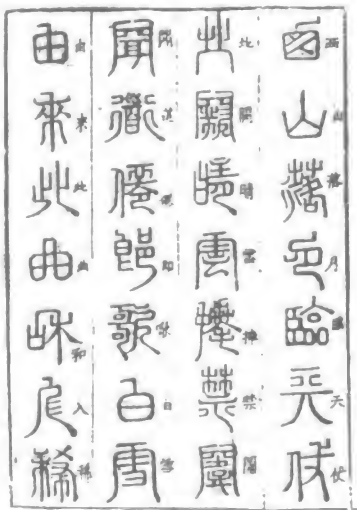 西山落月臨天仗
北闕晴雲捧禁闈
聞道僊郎歌白雪
由來此曲和人稀